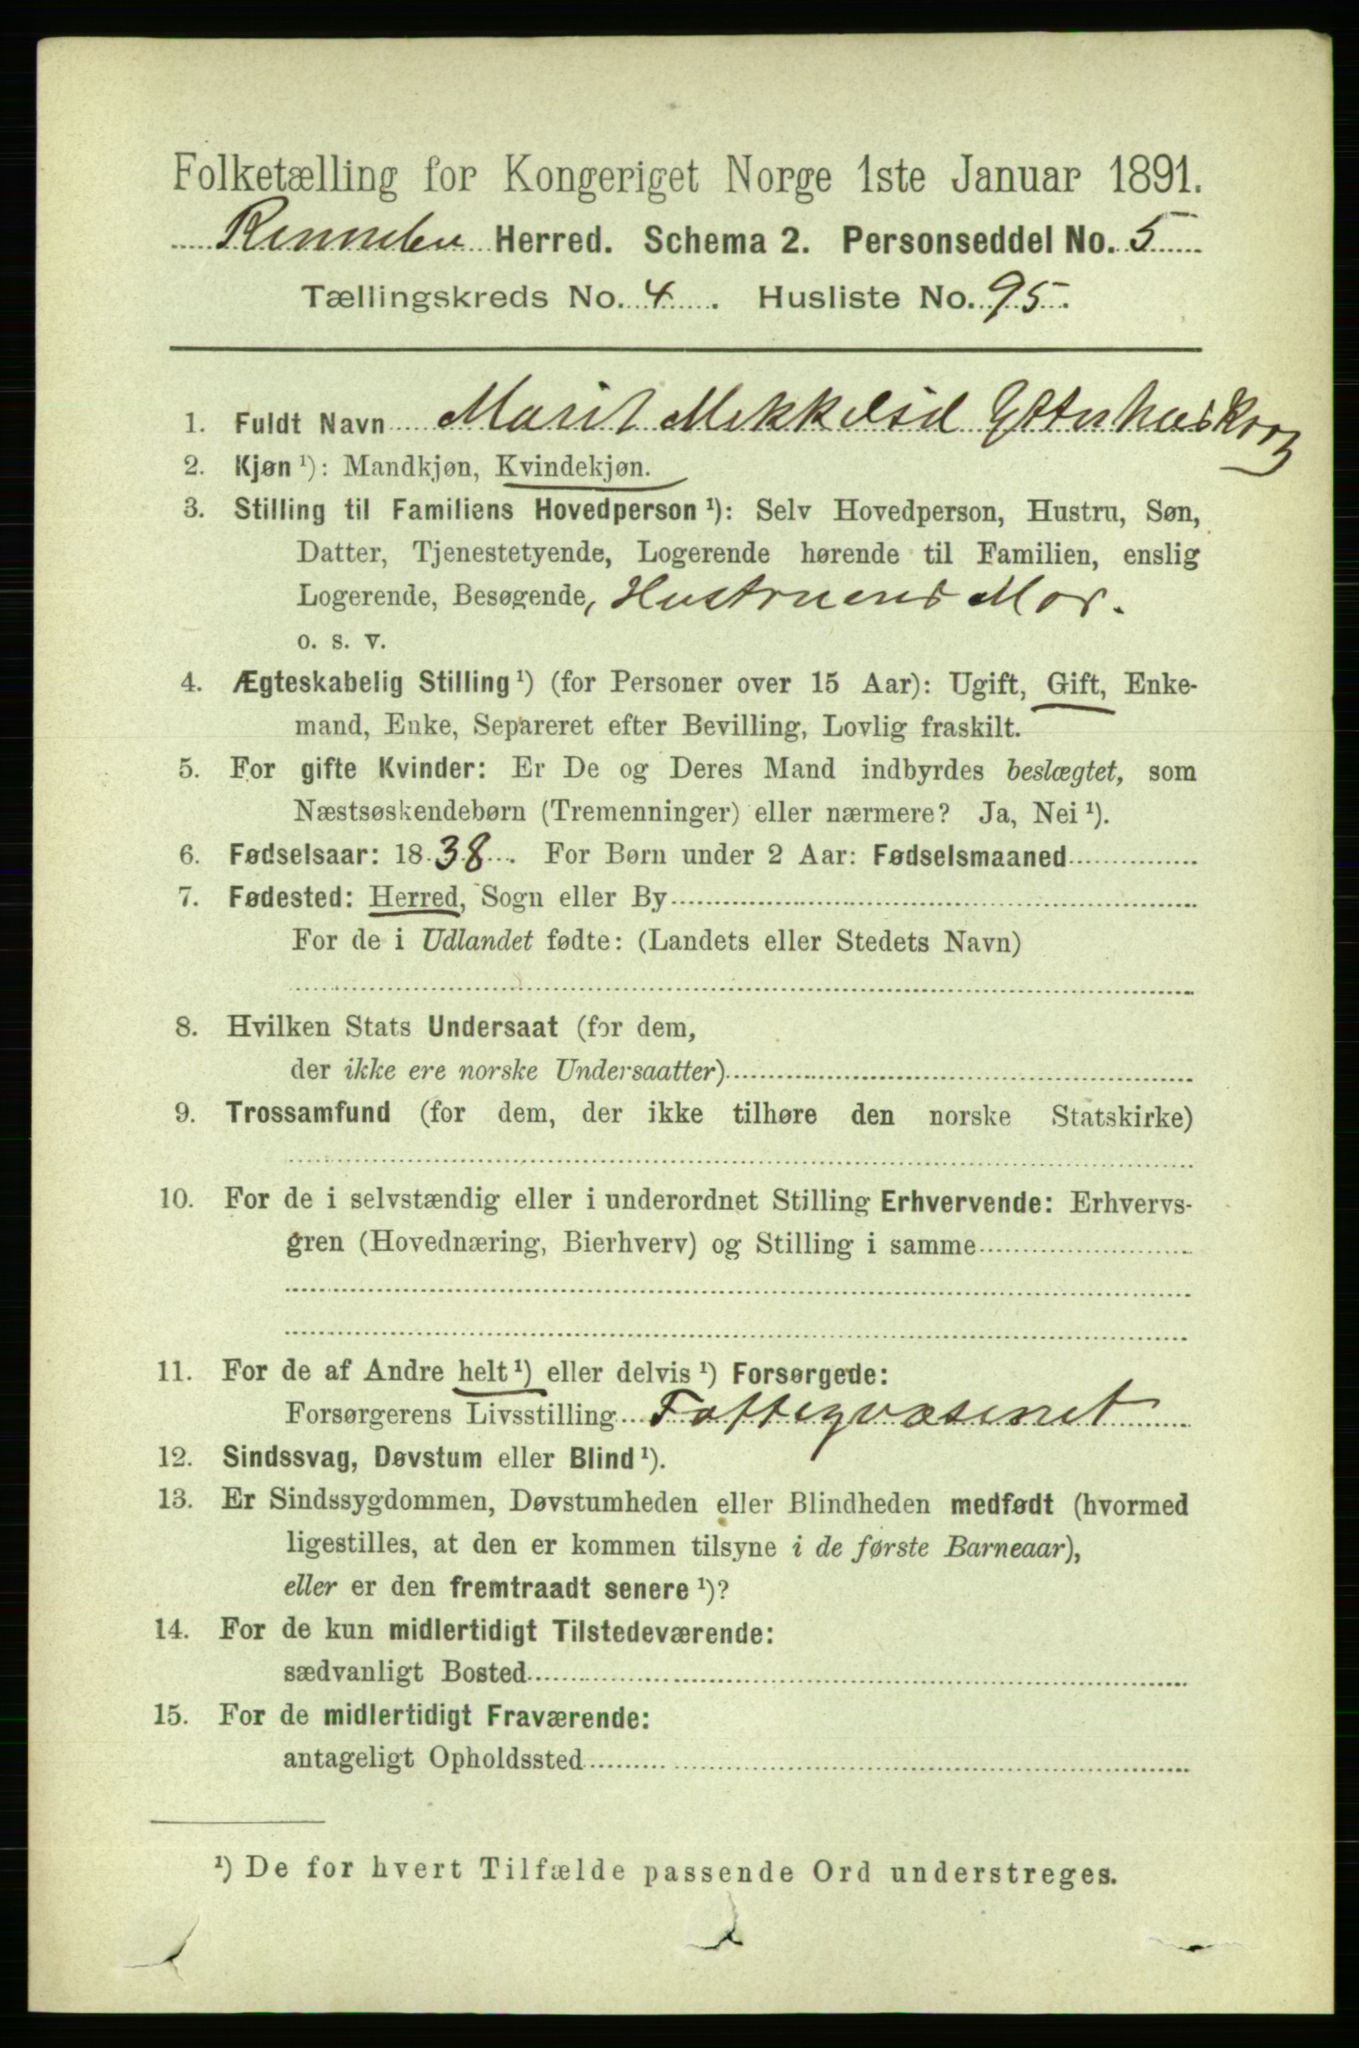 Folketælling for Kongeriget Norge 1ste Januar 1891.
Rennebu Herred. Schema 2. Personseddel No. 5
Tællingskreds No. 4. Husliste No. 95.
1. Fuldt Navn Marit Mikkelsd Ytterhus
2. Kjøn ¹): Mandkjøn, Kvindekjøn.
3. Stilling til Familiens Hovedperson ¹): Selv Hovedperson, Hustru, Søn,
Datter, Tjenestetyende, Logerende hørende til Familien, enslig
Logerende, Besøgende, Hustruens Mor.
o. s. v.
4. Ægteskabelig Stilling ¹) (for Personer over 15 Aar): Ugift, Gift, Enke-
mand, Enke, Separeret efter Bevilling, Lovlig fraskilt.
5. For gifte Kvinder: Er De og Deres Mand indbyrdes beslægtet, som
Næstsøskendebørn (Tremenninger) eller nærmere? Ja, Nei ¹).
6. Fødselsaar: 1838. For Børn under 2 Aar: Fødselsmaaned
7. Fødested: Herred, Sogn eller By
For de i Udlandet fødte: (Landets eller Stedets Navn)
8. Hvilken Stats Undersaat (for dem,
der ikke ere norske Undersaatter)
9. Trossamfund (for dem, der ikke tilhøre den norske Statskirke)
10. For de i selvstændig eller i underordnet Stilling Erhvervende: Erhvervs-
gren (Hovednæring, Bierhverv) og Stilling i samme
11. For de af Andre helt ¹) eller delvis ¹) Forsørgede:
Forsørgerens Livsstilling Fattigvæsenet
12. Sindssvag, Døvstum eller Blind ¹).
13. Er Sindssygdommen, Døvstumheden eller Blindheden medfødt (hvormed
ligestilles, at den er kommen tilsyne i de første Barneaar),
eller er den fremtraadt senere ¹)?
14. For de kun midlertidigt Tilstedeværende:
sædvanligt Bosted
15. For de midlertidigt Fraværende:
antageligt Opholdssted
¹) De for hvert Tilfælde passende Ord understreges.